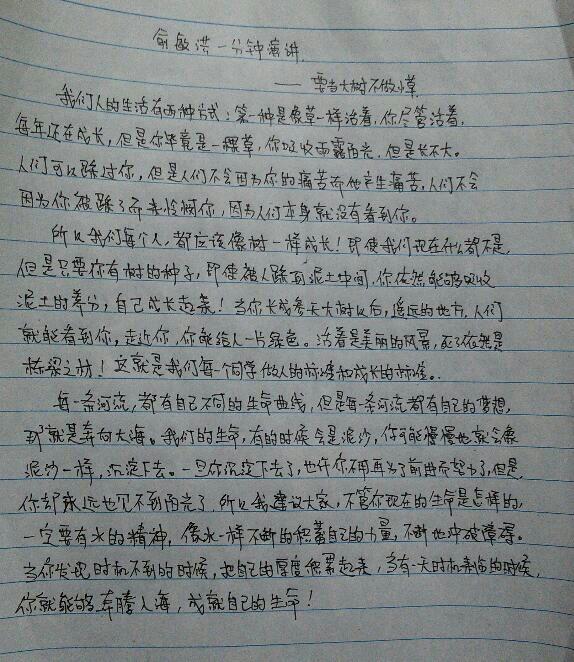 俞敏洪一分钟演讲.
——要当大树不做小草
我们人的生活有两种方式:第一种是像草一样活着,你尽管活着,
每年还在成长,但是你毕竟是一棵草,你吸收雨露阳光,但是长不大。
人们可以踩过你,但是人们不会因为你的痛苦而他产生痛苦,人们不会
因为你被踩了而来怜悯你,因为人们本身就没有看到你。
所以我们每个人,都应该像树一样成长!即使我们现在什么都不是,
但是只要你有树的种子,即使被人踩到泥土中间,你依然能够吸收
泥土的养分,自己成长起来!当你长成参天大树以后,遥远的地方,人们
就能看到你,走近你,你能给人一片绿色。活着是美丽的风景,死了依然是
栋梁之材!这就是我们每一个同学做人的标准和成长的标准。
每一条河流,都有自己不同的生命曲线,但是每一条河流都有自己的梦想,
那就是奔向大海。我们的生命,有的时候会是泥沙,你可能慢慢地就会像
泥沙一样,沉淀下去。一旦你沉淀下去了,也许你不用再为了前进而努力了,但是,
你却永远也见不到阳光了.所以我建议大家,不管你现在的生命是怎样的,
一定要有水的精神,像水一样不断的积蓄自己的力量,不断地冲破障碍。
当你发现时机不到的时候,把自己的厚度积累起来,当有一天时机来临的时候,
你就能够奔腾入海,成就自己的生命!